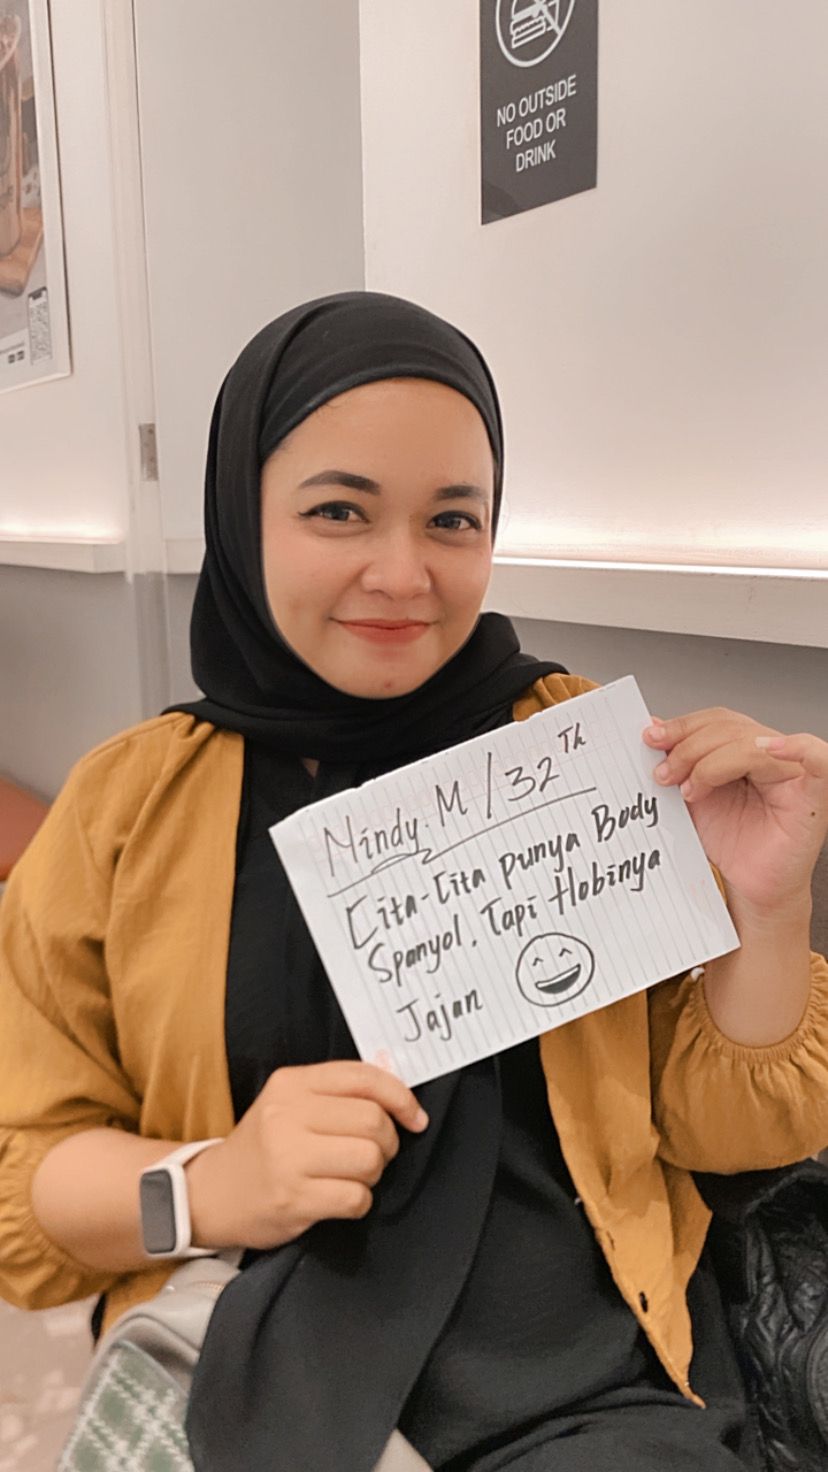 NO OUTSIDE
FOOD OR
DRINK
Mindy.M / 32 Th
Cita-Cita Punya Body
Spanyol, Tapi Hobinya
Jajan